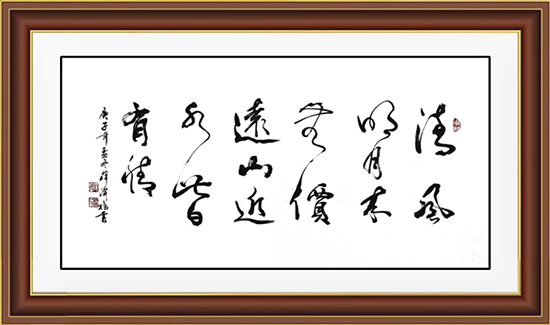 清風
明月本
無價
遠山近
水皆
有情
庚子年孟冬 書